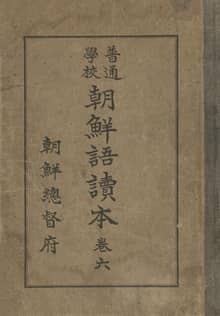 普通
學校
朝鮮語讀本 卷六
朝鮮總督府